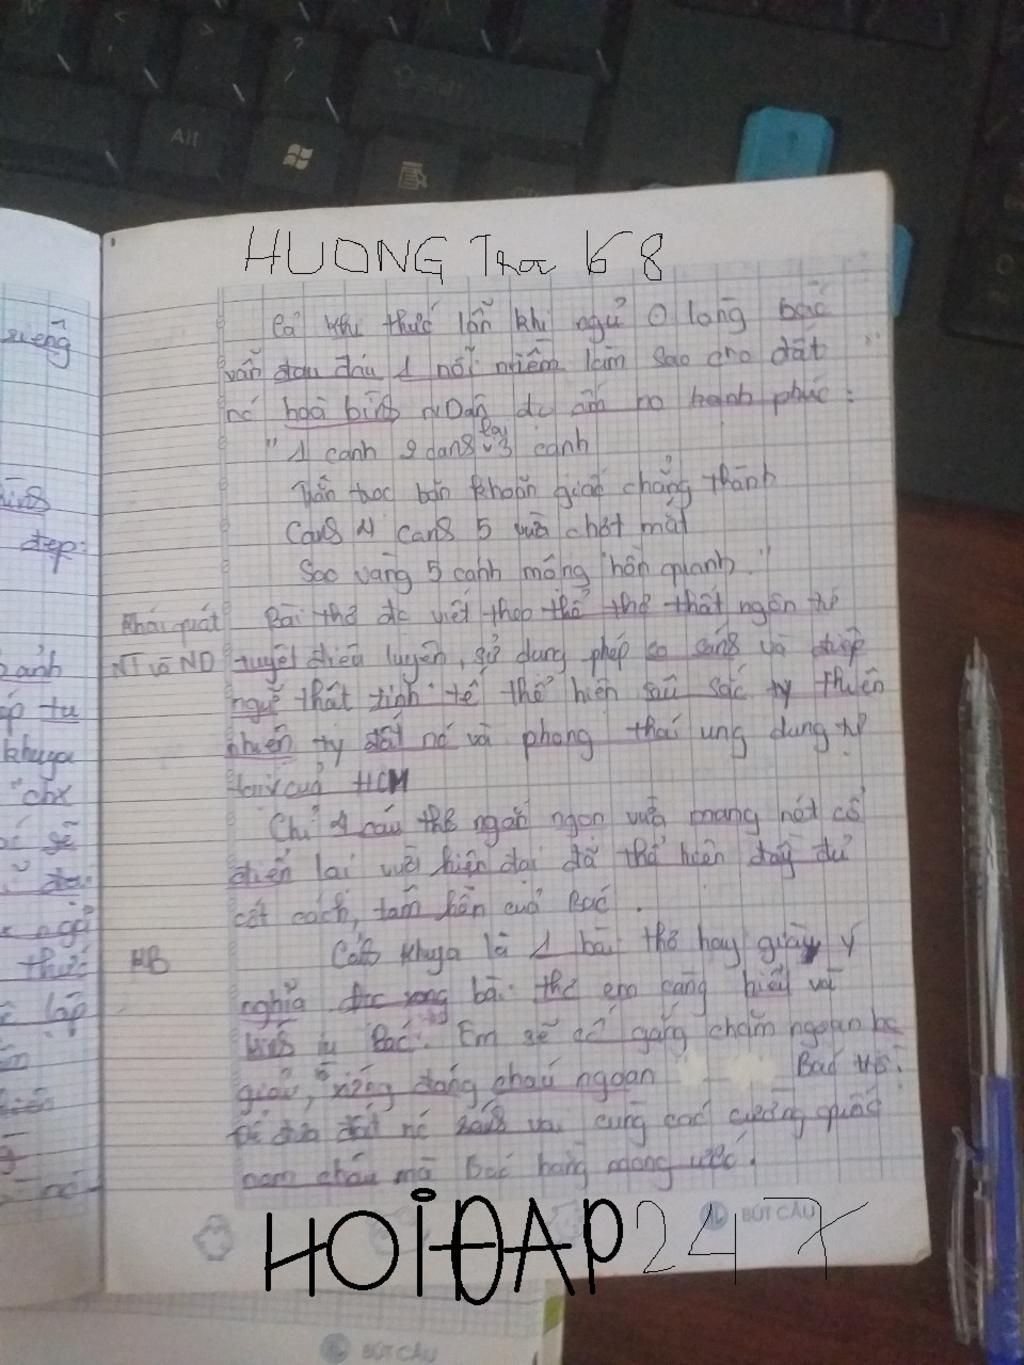 HUONG Tra K68
Cả khi thức lẫn khi ngủ O lòng bác
vẫn đau đáu 1 nỗi niềm làm sao cho đất
nc hoà bình ndân đc ấm no hạnh phúc:
"1 canh 2 canh lại 3 canh
Trằn trọc băn khoăn giấc chẳng thành
Canh 4 canh 5 vừa chợt mắt
Sao vàng 5 cánh mộng hồn quanh."
Khái quát Bài thơ đc viết theo thể thơ thất ngôn tứ
NT và ND tuyệt điêu luyện, sử dụng phép so sánh và điệp
ngữ thật tinh tế thể hiện sâu sắc ty thiên
nhiên ty đất nc và phong thái ung dung tự
của HCM
Chỉ 4 câu thơ ngắn ngọn vừa mang nét cổ
điển lại vừa hiện đại đã thể hiện đầy đủ
cốt cách, tâm hồn của Bác.
KB Cảnh khuya là 1 bài thơ hay giàu ý
nghĩa đọc xong bài thơ em càng hiểu và
Bác. Em sẽ cố gắng chăm ngoan hc
giỏi, xứng đáng cháu ngoan Bác Hồ.
để đưa đất nc sánh vai cùng các cường quốc
năm châu mà Bác hằng mong ước.
HOIĐAP247
BÚT CÂU
BÚT CÂU
xuống
đẹp:
cảnh
tu
khuya
"chx
sẽ
ngủ
thức
lặp
nc
Alt